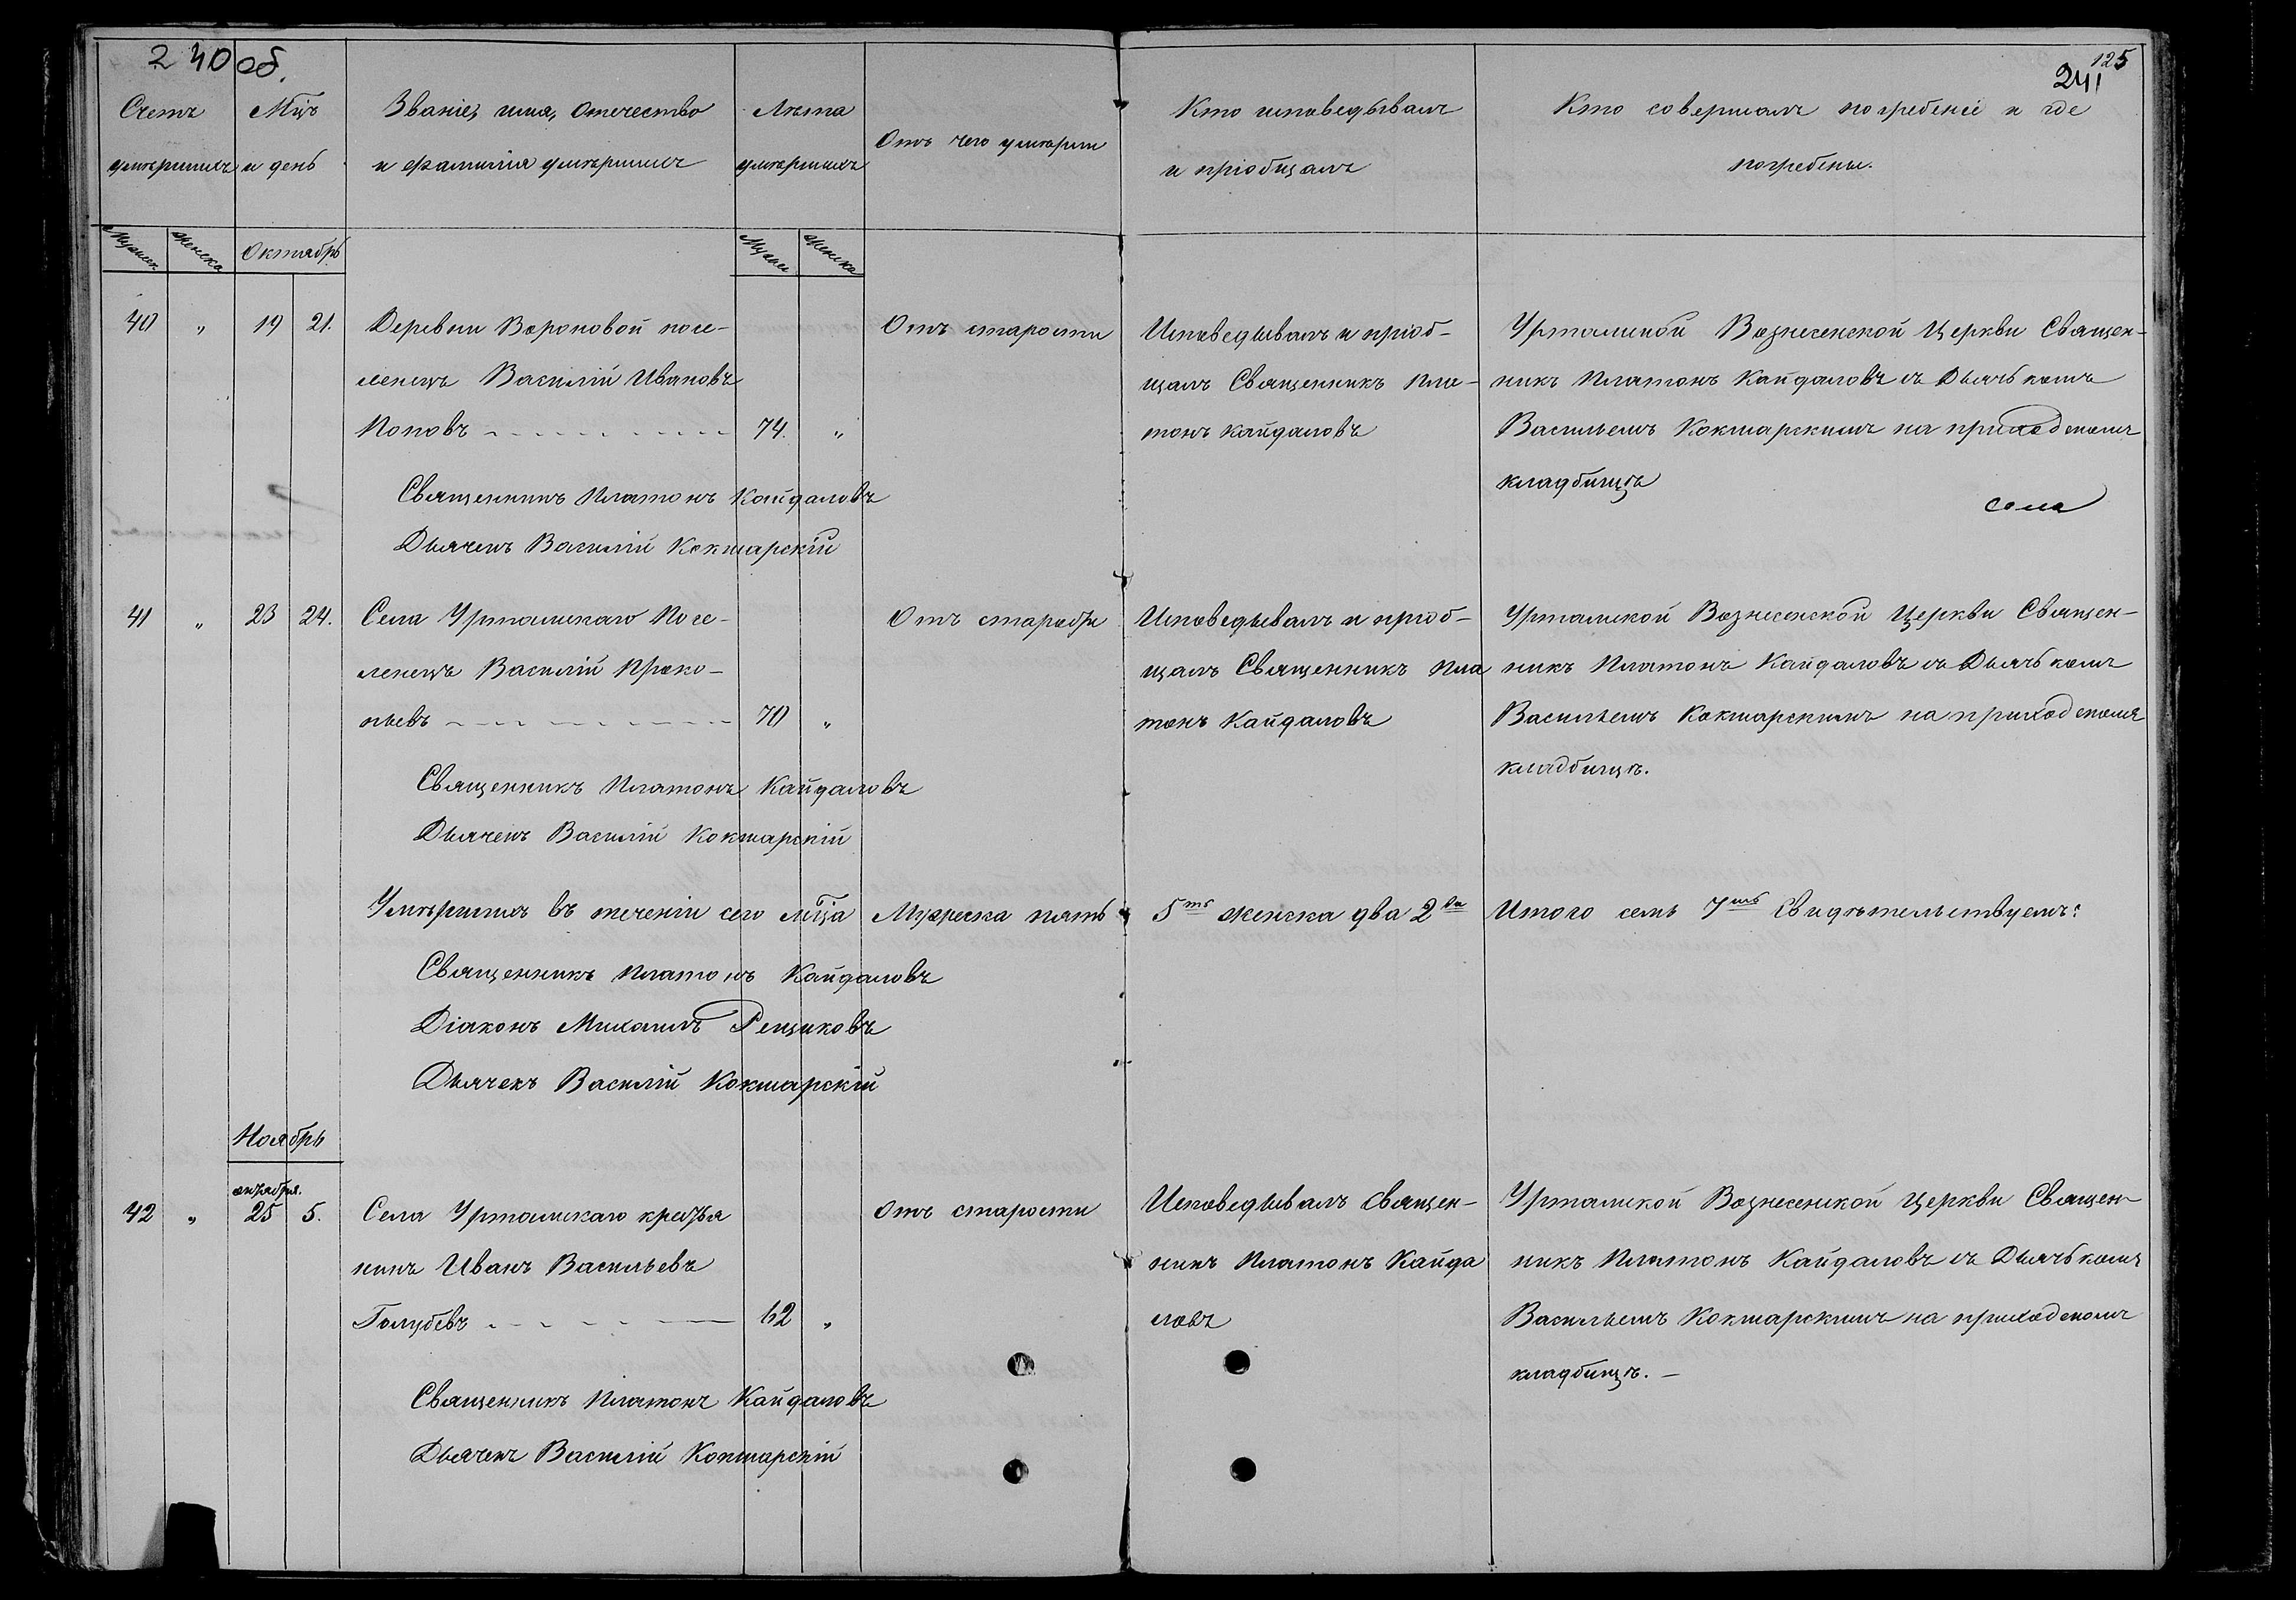 240 об.
125
241
Счетъ
умершихъ
Мцъ
и день
Званіе, имя, отечество
и фамилія умершихъ
Лѣта
умершихъ
Отъ чего умерли
Кто исповедывалъ
и пріобщалъ
Кто совершалъ погребеніе и где
погребены.
Мужеск
Женска
Октябрь
Мужеск
Женска
40 " 19 21. Деревни Вороновой посе-
ленецъ Василій Ивановъ
Поповъ 74. "
Отъ старости
Исповедывалъ и пріоб-
щалъ Священникъ Пла-
тонъ Кайдаловъ
Уртамской Вознесенской Церкви Священ-
никъ Платонъ Кайдаловъ съ Дьячькомъ
Васильемъ Кокшарскимъ на приходскомъ
кладбищѣ
села
Священникъ Платонъ Кайдаловъ
Дьячекъ Василій Кокшарскій
41 " 23 24. Села Уртамскаго Посе-
ленецъ Василій Проко-
пьевъ 70 "
Отъ старости
Исповедывалъ и пріоб-
щалъ Священникъ Пла
тонъ Кайдаловъ
Уртамской Вознесенской Церкви Священ-
никъ Платонъ Кайдаловъ съ Дьячькомъ
Васильемъ Кокшарскимъ на приходскомъ
кладбищѣ.
Священникъ Платонъ Кайдаловъ
Дьячекъ Василій Кокшарскій
Умѣршихъ въ теченіи сего мца Мужеска пять 5ть женска два 2ва Итого семь 7мь Свидѣтельствуемъ:
Священникъ Платонъ Кайдаловъ
Діаконъ Михаилъ Рещиковъ
Дьячекъ Василій Кокшарскій
Ноябрь
октября.
42 " 25 5. Села Уртамскаго крестья
нинъ Иванъ Васильевъ
Голубевъ 62 "
Отъ старости
Исповедывалъ Священ-
никъ Платонъ Кайда
ловъ
Уртамской Вознесенской Церкви Священ-
никъ Платонъ Кайдаловъ съ Дьячькомъ
Васильемъ Кокшарскимъ на приходскомъ
кладбищѣ. -
Священникъ Платонъ Кайдаловъ
Дьячекъ Василій Кокшарскій